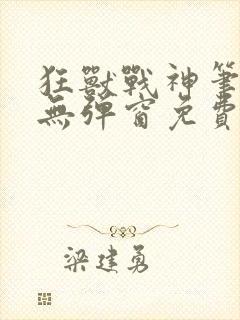 狂獸戰神筆
無彈窗免費
梁建勇